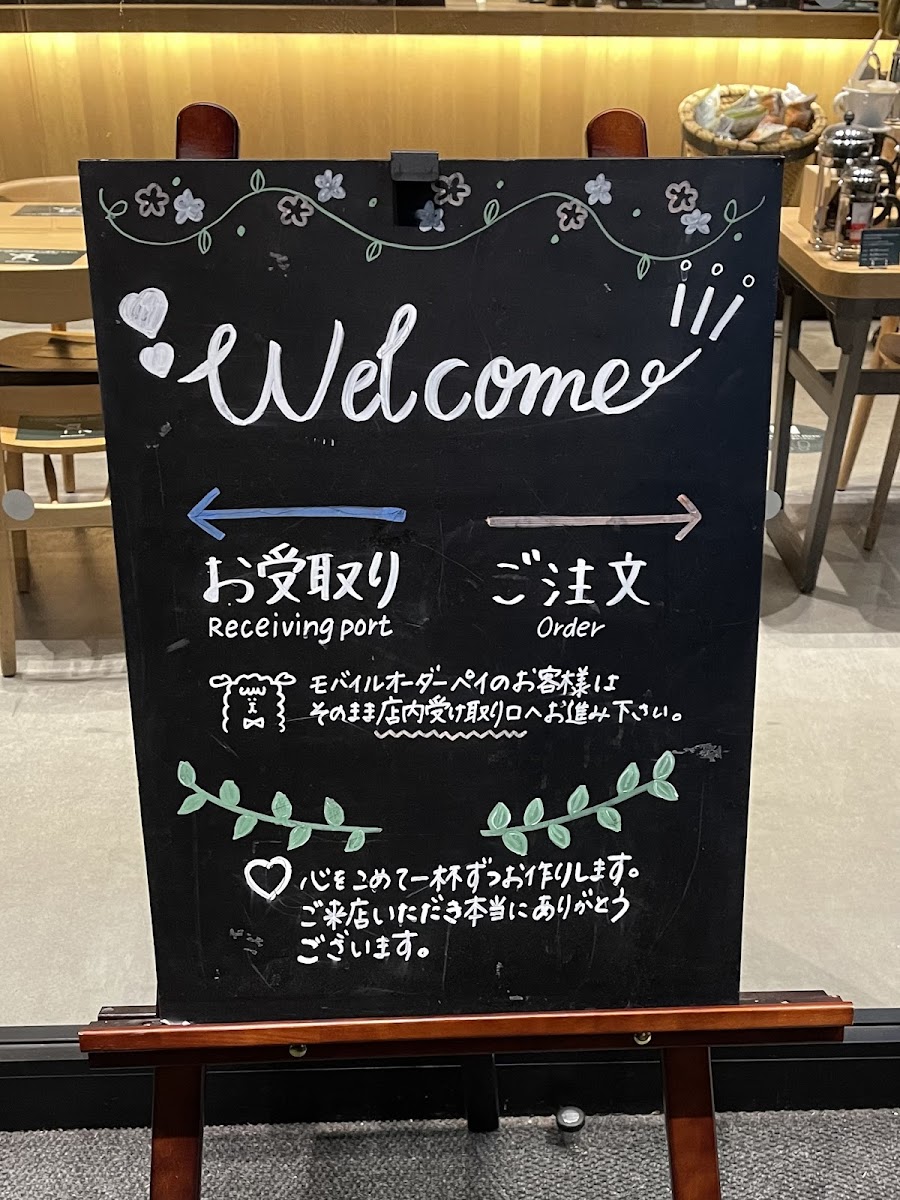 Welcome
お受取り
Receiving port
ご注文
Order
モバイルオーダーペイのお客様は
そのまま店内受け取り口へお進み下さい。
心をこめて一杯ずつお作りします。
ご来店いただき本当にありがとう
ございます。